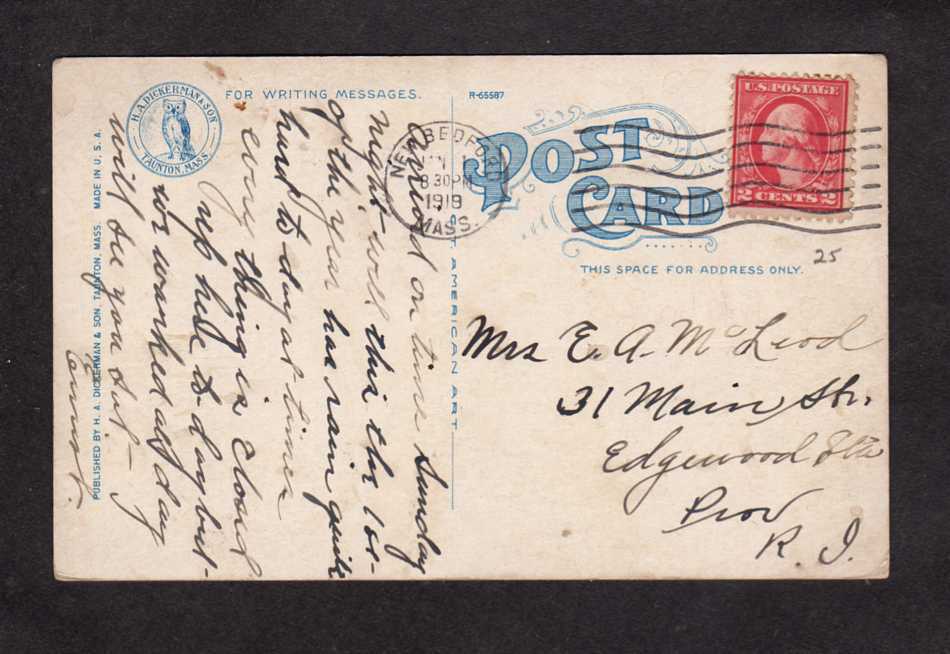 H. A. DICKERMAN & SON
TAUNTON, MASS.
FOR WRITING MESSAGES.
R-65587
POST CARD
NEW BEDFORD
8 30 PM
1919
MASS.
U.S. POSTAGE
2 CENTS 2
25
THIS SPACE FOR ADDRESS ONLY.
AMERICAN ART
PUBLISHED BY H. A. DICKERMAN & SON, TAUNTON, MASS. MADE IN U. S. A.
Arrived on time Sunday
night well this the 1st
of the year has rain quite
hard to day at times
every thing is Closed
up here to day but
we worked all day
will be you Sat-
Ernest.
Mrs E. A. McLeod
31 Main Str.
Edgewood Sta
Prov
R. I.